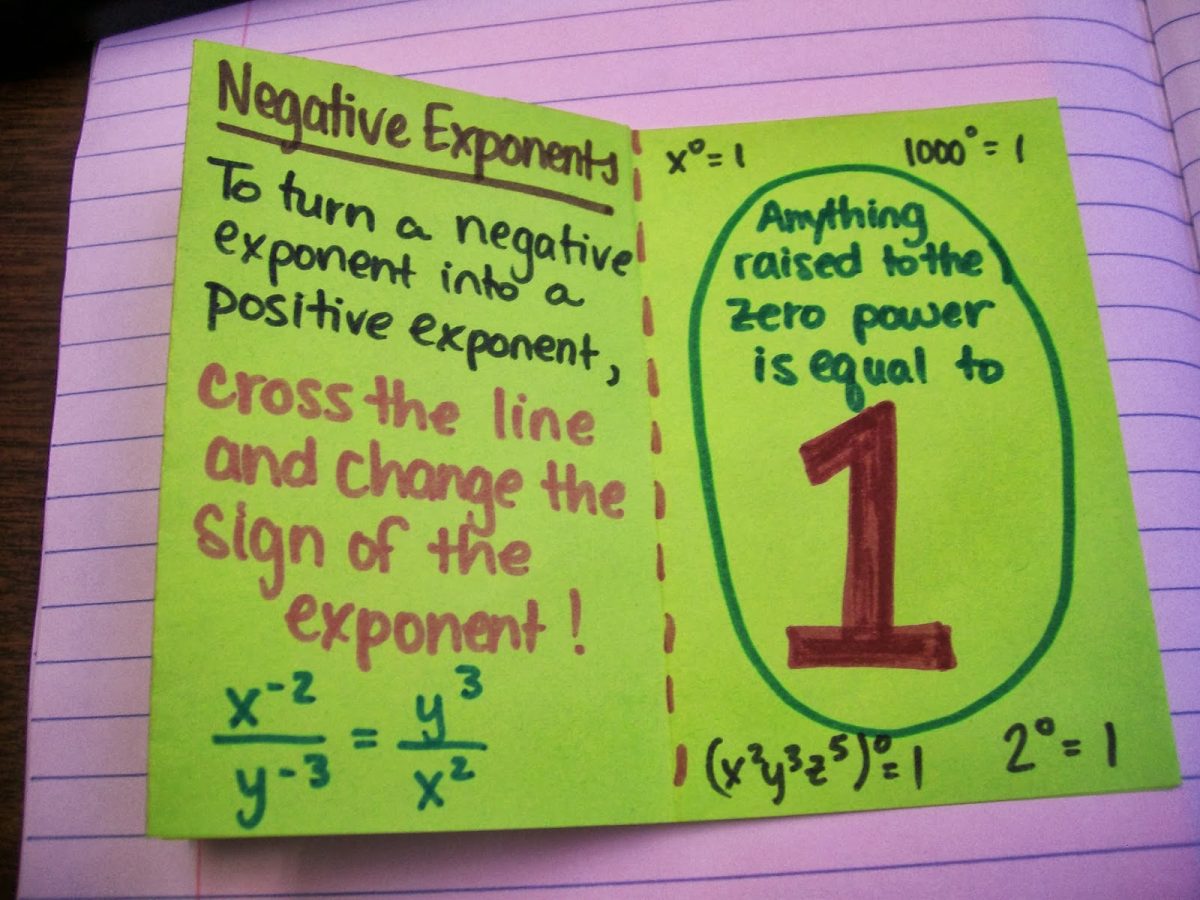 Negative Exponents
To turn a negative
exponent into a
positive exponent,
cross the line
and change the
sign of the
exponent!
x⁻² / y⁻³ = y³ / x²
x⁰ = 1
1000⁰ = 1
Anything
raised to the
zero power
is equal to
1
(x²y³z⁵)⁰ = 1
2⁰ = 1